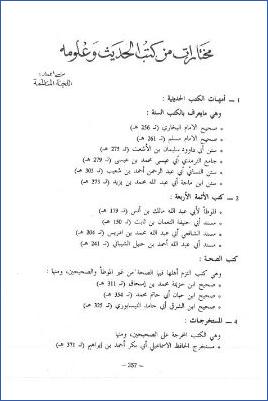 مختارات من كتب الحديث وعلومه
من اعداد:
اللجنة المنظمة
1 ــ أمهات الكتب الحديثية :
وهي مايعرف بالكتب الستة :
* صحيح الامام البخاري (تـ 256 هـ)
* صحيح الامام مسلم (تـ 261 هـ)
* سنن أبي داوود سليمان بن الأشعث (تـ 275 هـ)
* جامع الترمذي أبي عيسى محمد بن عيسى (تـ 279 هـ)
* سنن النسائي أبي عبد الرحمن أحمد بن شعيب (تـ 303 هـ)
* سنن ابن ماجة أبي عبد الله محمد بن يزيد (تـ 273 هـ)
2 ــ كتب الأئمة الأربعة :
* الموطأ لأبي عبد الله مالك بن أنس (تـ 179 هـ)
* مسند أبي حنيفة النعمان بن ثابت (تـ 150 هـ)
* مسند الشافعي أبي عبد الله محمد بن ادريس (تـ 204 هـ)
* مسند أبي عبد الله أحمد بن حنبل الشيباني (تـ 241 هـ)
كتب الصحة :
وهي كتب التزم أهلها فيها الصحة من غير الموطأ والصحيحين، ومنها :
* صحيح ابن خزيمة محمد بن إسحاق (تـ 311 هـ)
* صحيح ابن حبان أبي حاتم محمد (تـ 354 هـ)
* صحيح ابن الشرقي أبي حامد النيسابوري (تـ 325 هـ)
4 ــ المستخرجات :
وهي الكتب المخرجة على الصحيحين، ومنها
* مستخرج الحافظ الاسماعيلي أبي بكر أحمد بن إبراهيم (تـ 371 هـ)
ــ 357 ــ